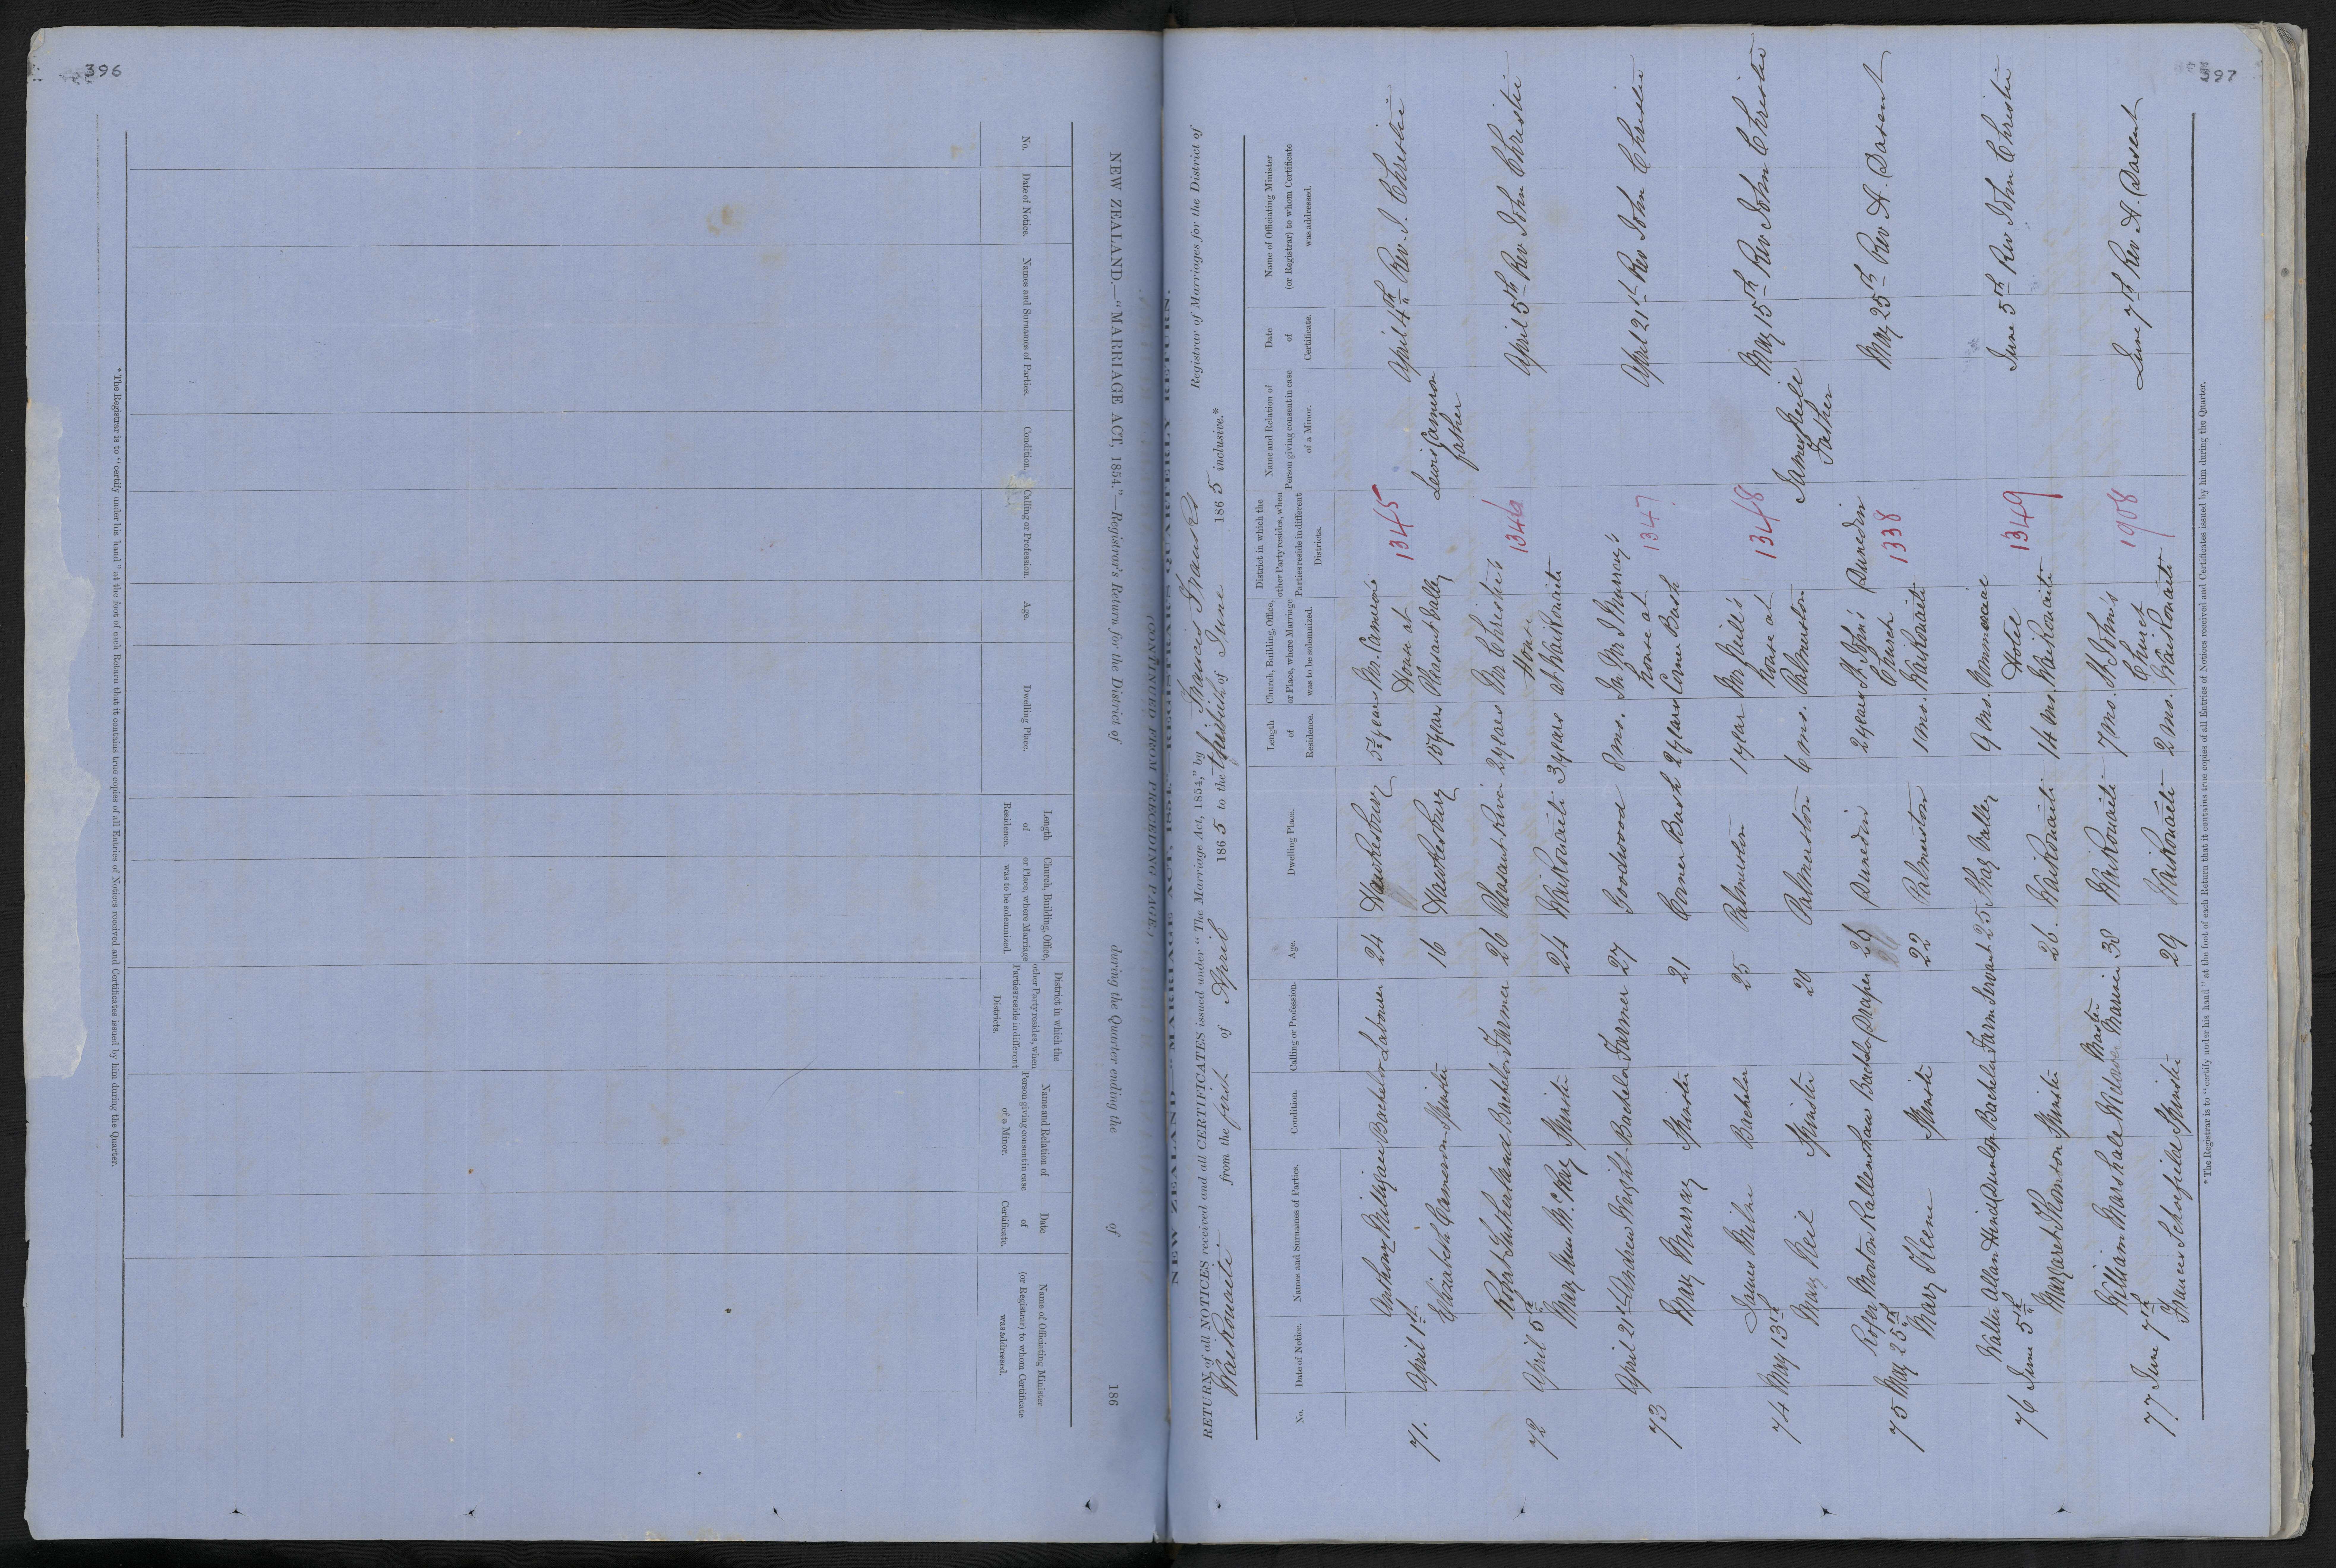 396
NEW ZEALAND.—"MARRIAGE ACT, 1854."—Registrar's Return for the District of during the Quarter ending the of 186
(CONTINUED FROM PRECEDING PAGE.)
No.
Date of Notice.
Names and Surnames of Parties.
Condition.
Calling or Profession.
Age.
Dwelling Place.
Length of Residence.
Church, Building, Office, or Place, where Marriage was to be solemnized.
District in which the other Party resides, when Parties reside in different Districts.
Name and Relation of Person giving consent in case of a Minor.
Date of Certificate.
Name of Officiating Minister (or Registrar) to whom Certificate was addressed.
*The Registrar is to "certify under his hand" at the foot of each Return that it contains true copies of all Entries of Notices received and Certificates issued by him during the Quarter.
397
NEW ZEALAND.—"MARRIAGE ACT, 1854."—REGISTRAR'S QUARTERLY RETURN.
RETURN of all NOTICES received and all CERTIFICATES issued under "The Marriage Act, 1854," by Francis Trausks Registrar of Marriages for the District of
Waikouaiti from the first of April 1865 to the thirtieth of June 1865 inclusive.*
No.
Date of Notice.
Names and Surnames of Parties.
Condition.
Calling or Profession.
Age.
Dwelling Place.
Length of Residence.
Church, Building, Office, or Place, where Marriage was to be solemnized.
District in which the other Party resides, when Parties reside in different Districts.
Name and Relation of Person giving consent in case of a Minor.
Date of Certificate.
Name of Officiating Minister (or Registrar) to whom Certificate was addressed.
71. April 1st Anthony Milligan Bachelor Labourer 24 Hawkesbury 5½ years Mr. Cameron's House at Pleasant Valley 1345 April 4th Rev. J. Christie
Elizabeth Cameron Spinster 16 Hawkesbury 15 years Lewis Cameron father
72 April 5th Robert Sutherland Bachelor Farmer 26 Pleasant River 2 years Mr Christie's House at Waikouaiti 1346 April 5th Rev John Christie
Mary Ann McKay Spinster 24 Waikouaiti 3 years
73 April 21st Andrew Wright Bachelor Farmer 27 Goodwood 8 ms. In Mr J Murray's house at Corner Bush 1347 April 21st Rev John Christie
Mary Murray Spinster 21 Corner Bush 2 years
74 May 13th James Miln Bachelor 25 Palmerston 1 year Mr Neill's house at Palmerston 1348 May 15th Rev John Christie
Mary Neil Spinster 20 Palmerston 6 ms. James Neile Father
75 May 25th Roger Morton Kallenshaw Bachelor Draper 26 Dunedin 2 years St John's Church Waikouaiti Dunedin 1338 May 25th Rev A. Dasent
Mary Keene Spinster 22 Palmerston 1 mo.
76 June 5th Walter Allan Hind Dunlop Bachelor Farm Servant 25 Shag Valley 9 mo. Hotel Waikouaiti 1349 June 5th Rev John Christie
Margaret Thomson Spinster 26 Waikouaiti 14 mo.
77 June 7th William Marshall Widower Master Mariner 38 Waikouaiti 7 mo. St John's Church Waikouaiti 1908 June 7th Rev A. Dasent
Frances Schoefield Spinster 29 Waikouaiti 2 mo.
*The Registrar is to "certify under his hand" at the foot of each Return that it contains true copies of all Entries of Notices received and Certificates issued by him during the Quarter.